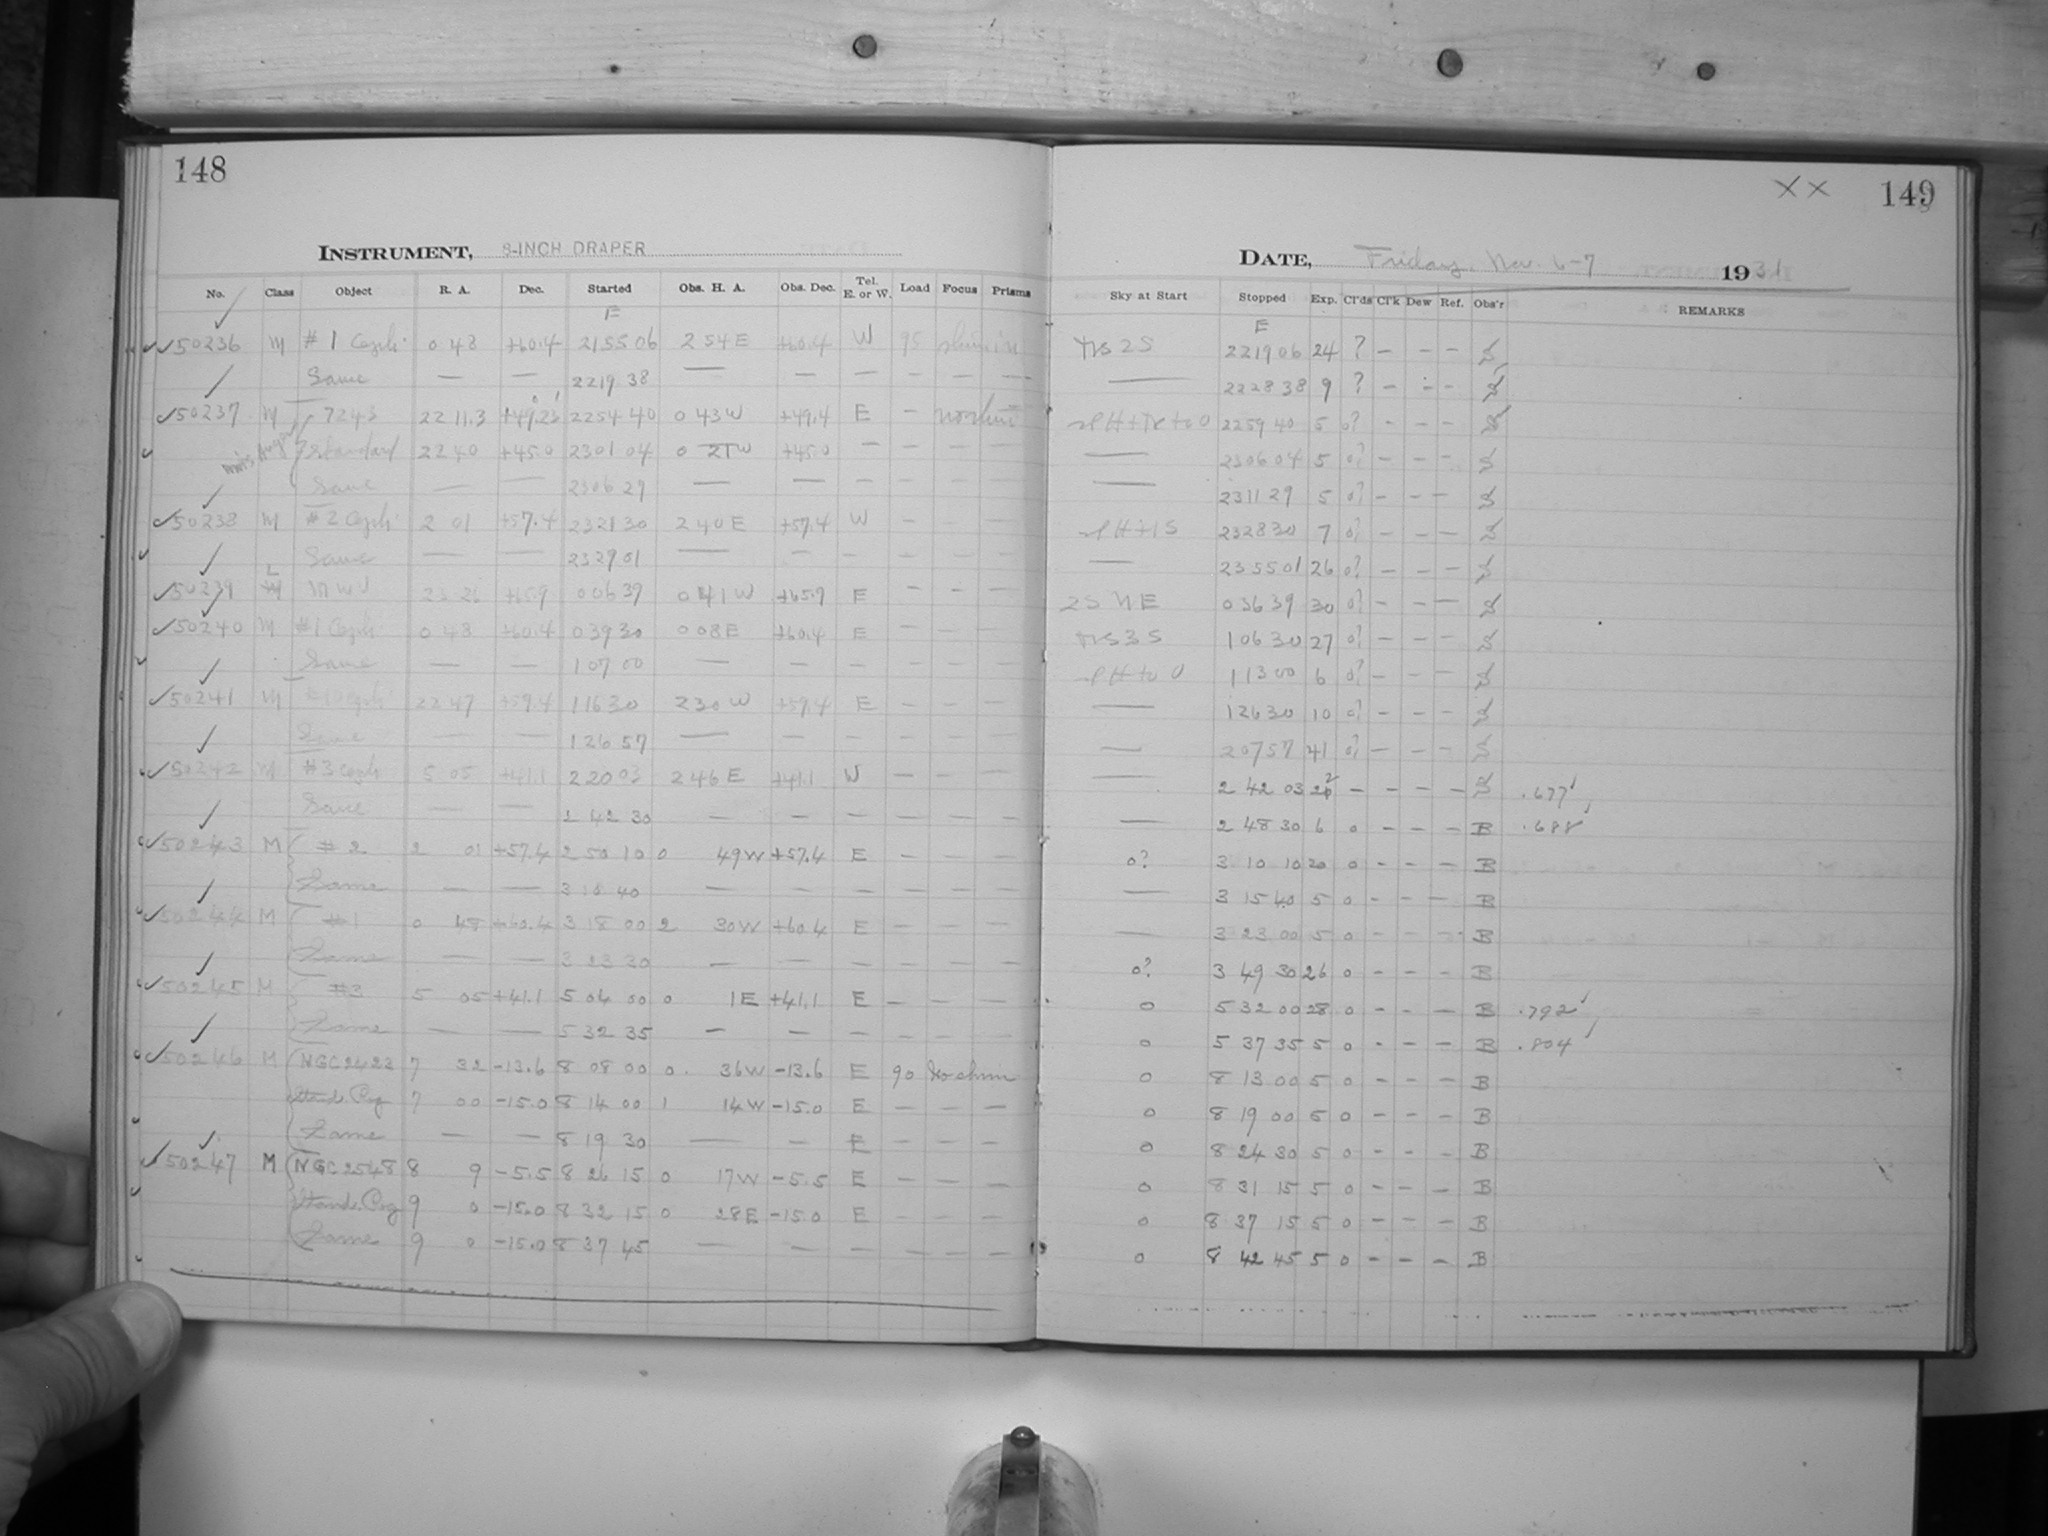 148
INSTRUMENT, 8-INCH DRAPER
No. Class Object R. A. Dec. Started Obs. H. A. Obs. Dec. Tel. E. or W. Load Focus Prisms
E
50236 M #1 Ceph. 0 48 +60.4 21 55 06 2 54 E +60.4 W 95
Same — — 22 19 38 — — — — — —
50237 M 7243 22 11.3 +49.23 22 54 40 0 43 W +49.4 E — no shim
Standard 22 40 +45.0 23 01 04 0 21 W +45.0 — — — —
Same — — 23 06 29 — — — — — —
50238 M #2 Ceph. 2 01 +57.4 23 21 30 2 40 E +57.4 W — — —
Same — — 23 29 01 — — — — — —
L
50239 M MWU 23 26 +65.9 0 06 39 0 41 W +65.9 E — — —
50240 M #1 Ceph. 0 48 +60.4 0 39 30 0 08 E +60.4 E — — —
Same — — 1 07 00 — — — — — —
50241 M 22 47 +59.4 1 16 30 2 30 W +59.4 E — — —
Same — — 1 26 57 — — — — — —
50242 M #3 Ceph 5 05 +41.1 2 20 03 2 46 E +41.1 W — — —
Same — — 2 42 30 — — — — — —
50243 M #2 2 01 +57.4 2 50 10 0 49 W +57.4 E — — —
Same — — 3 10 40 — — — — — —
50244 M #1 0 48 +60.4 3 18 00 2 30 W +60.4 E — — —
Same — — 3 23 30 — — — — — —
50245 M #3 5 05 +41.1 5 04 00 0 1 E +41.1 E — — —
Same — — 5 32 35 — — — — — —
50246 M NGC2423 7 32 -13.6 8 08 00 0 36 W -13.6 E 90 No shim
Stand. Reg 7 00 -15.0 8 14 00 1 14 W -15.0 E — — —
Same — — 8 19 30 — — E — — —
50247 M NGC2548 8 9 -5.5 8 26 15 0 17 W -5.5 E — — —
Stand. Reg 9 0 -15.0 8 32 15 0 28 E -15.0 E — — —
Same 9 0 -15.0 8 37 45 — — — — — —
XX 149
DATE, Friday, Nov. 6-7 1931
Sky at Start Stopped Exp. Cl'ds Cl'k Dew Ref. Obs'r REMARKS
E
22 19 06 24 ? — — — S
— 22 28 38 9 ? — — — S
22 59 40 5 0? — — — S
— 23 06 04 5 0? — — — S
— 23 11 29 5 0? — — — S
23 28 30 7 0? — — — S
— 23 55 01 26 0? — — — S
2S NE 0 36 39 30 0? — — — S
1 06 30 27 0? — — — S
1 13 00 6 0? — — — S
— 1 26 30 10 0? — — — S
— 2 07 57 41 0? — — — S
— 2 42 03 22 — — — — S .677
— 2 48 30 6 0 — — — B .688
0? 3 10 10 20 0 — — — B
— 3 15 40 5 0 — — — B
— 3 23 00 5 0 — — — B
0? 3 49 30 26 0 — — — B
0 5 32 00 28 0 — — — B .792
0 5 37 35 5 0 — — — B .804
0 8 13 00 5 0 — — — B
0 8 19 00 5 0 — — — B
0 8 24 30 5 0 — — — B
0 8 31 15 5 0 — — — B
0 8 37 15 5 0 — — — B
0 8 42 45 5 0 — — — B